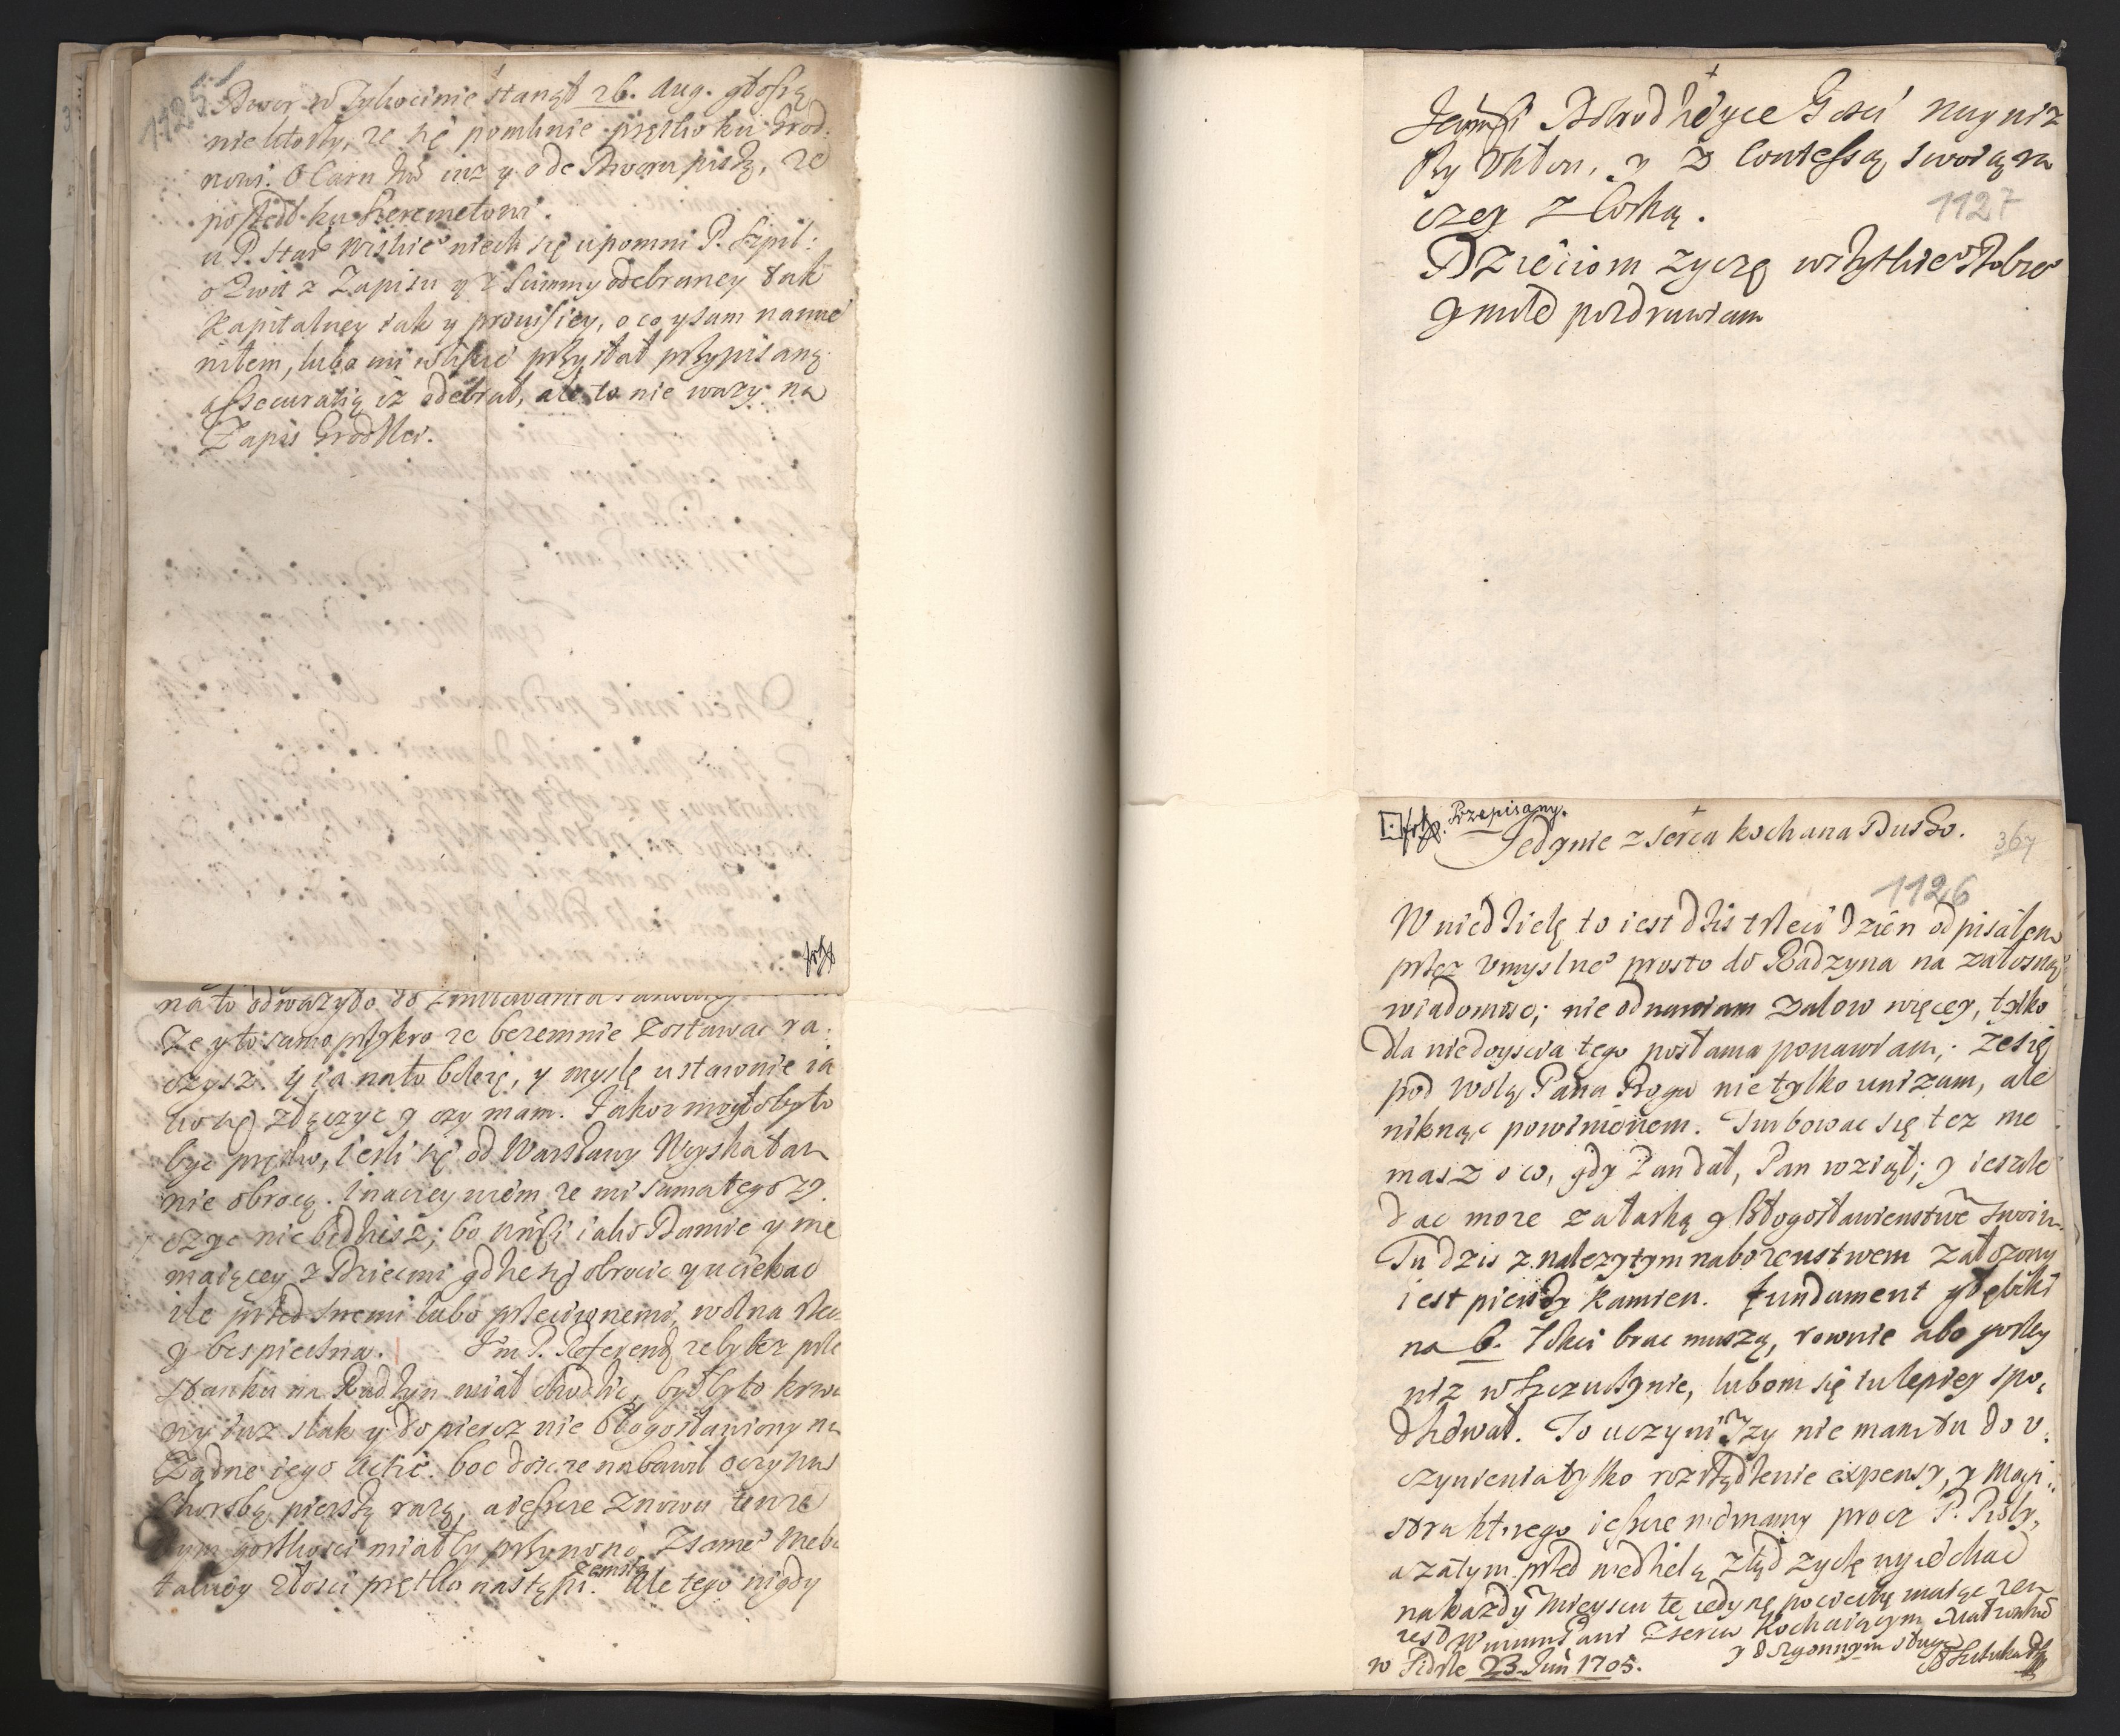 1125
Dwor w Tykocinie stanął 26. Aug. głoszą
nie ktorzy, że się pomknie prętko ku Grod:
nowi. O Caru Im̃ci iuz y ode Dworu piszą, ze
poszedł ku Szeremetowi.
u P. Star Wiskie niech się upomni P. Szpil:
o Zwit z Zapisu y z Summy odebraney tak
Kapitalney iak y prowisiey, o co y sam namie
niłem, lubo mi przysłał przypisaną
assecuratią iz odebrał, ale to nie wazy na
Zapis Grodzki.
na to odwazyło do
Ze y to samo przykro ze bezemnie zostawac ra:
czysz. y ia nato boleię, y myslę ustawnie ia
ko się złączyc y oczy mam. Jakoz mogłoby to
byc prętko, iesli się od Warszawy Wyska tam
nie obrocą. Inaczey wiem ze mi sama tego zy:
czyc nie będziesz; bo iako Damie y nie
maiącey z Dziecmi gdzie się obrocic y uciekac
ile przed swemi lubo przeciwnemi, wolna rzecz
y bespieczna. Im P. Referend zeby bez prze
stanku na Radzyn miał chodzic, byłby to krwa
wy iuz szlak y dopieroz nie błogosławiony na
Zadne iego Actie. boc dosc ze nabawił oczy nas
Chorobą pierszą razą, a ieszcze znowu
tym gorzkosci miałby przynosic, Zsame Nieba
takiey złosci prętko nastąpi zemsta. Ale tego nigdy
Jeymsci Dobrodzieyce Gosci nayniz
szy Ukłon, y z Contessą swoią ra
czey z Corką.
1127
Dzieciom zyczę wszytkie Dobre
y mile pozdrawiam
Przepisany.
Jedynie z serca kochana Duszo.
367
1126
W niedzielę to iest dzis trzeci dzien odpisałem
przez Umyslne prosto do Radzyna na załosną
wiadomosc; nie odnawiam zalow więcey, tylko
dla niedoyscia tego posłanca ponawiam; ze się
pod wolą Pana Boga nie tylko unizam, ale
niknąc powinienem. Turbowac się tez nie
masz o co, gdy Pan dał, Pan wziął; y ieszcze
dac moze za łaską y Błogosławienstwẽ swoim.
Tu dzis z nalezytym nabozenstwem załozony
iest pierszy Kamien. Fundament głęboki
na 6. łokci brac muszą, rownie abo gorszy
niz w Szczuczynie, lubom się tu lepiey spo:
dziewał. To uczyniwszy nie mam tu do u:
czynienia tylko rozrządzenie expensy, y Magi:
stra ktorego ieszcze nie mamy procz P. Piotr,
a zatym przed niedzielą ztąd zyczę wyiechac
na kazdy mieyscu tę iedynę pociechę maiąc zem
iest Wmmsci Pani Zserca Kochaiącym Małzonkiem
y dozgonnym sługą
w Sidrze 23 Jun 1705.